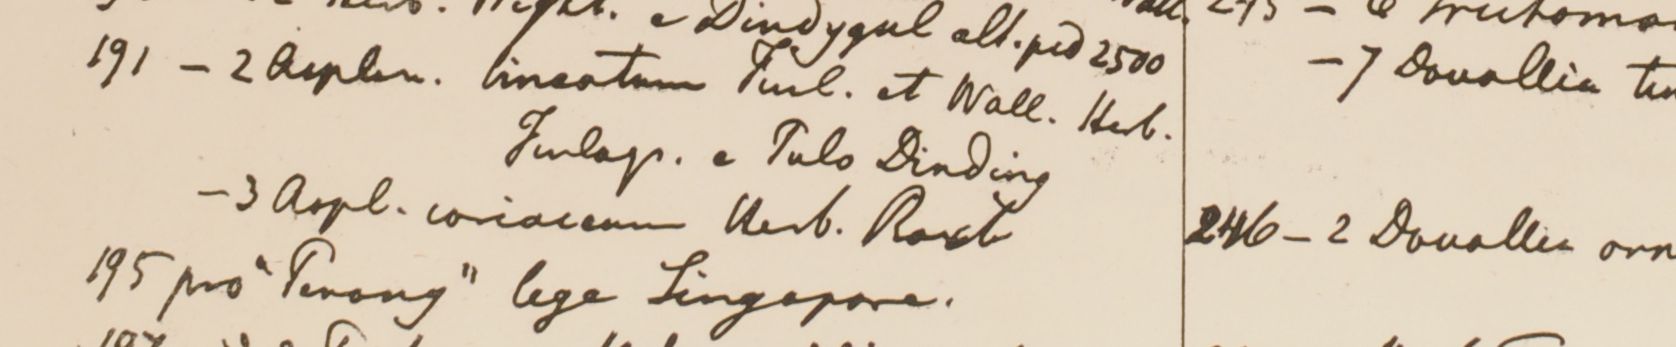 Herb. Wight. e Dindygul alt. ped 2500
191 – 2 Asplen. lineatum Finl. et Wall. Herb.
Finlays. e Pulo Dinding
– 3 Aspl. coriaceum Herb. Roxb
195 pro "Penang" lege Singapore.
245 – 6 Trichoman
– 7 Davallia
246 – 2 Davallia orn